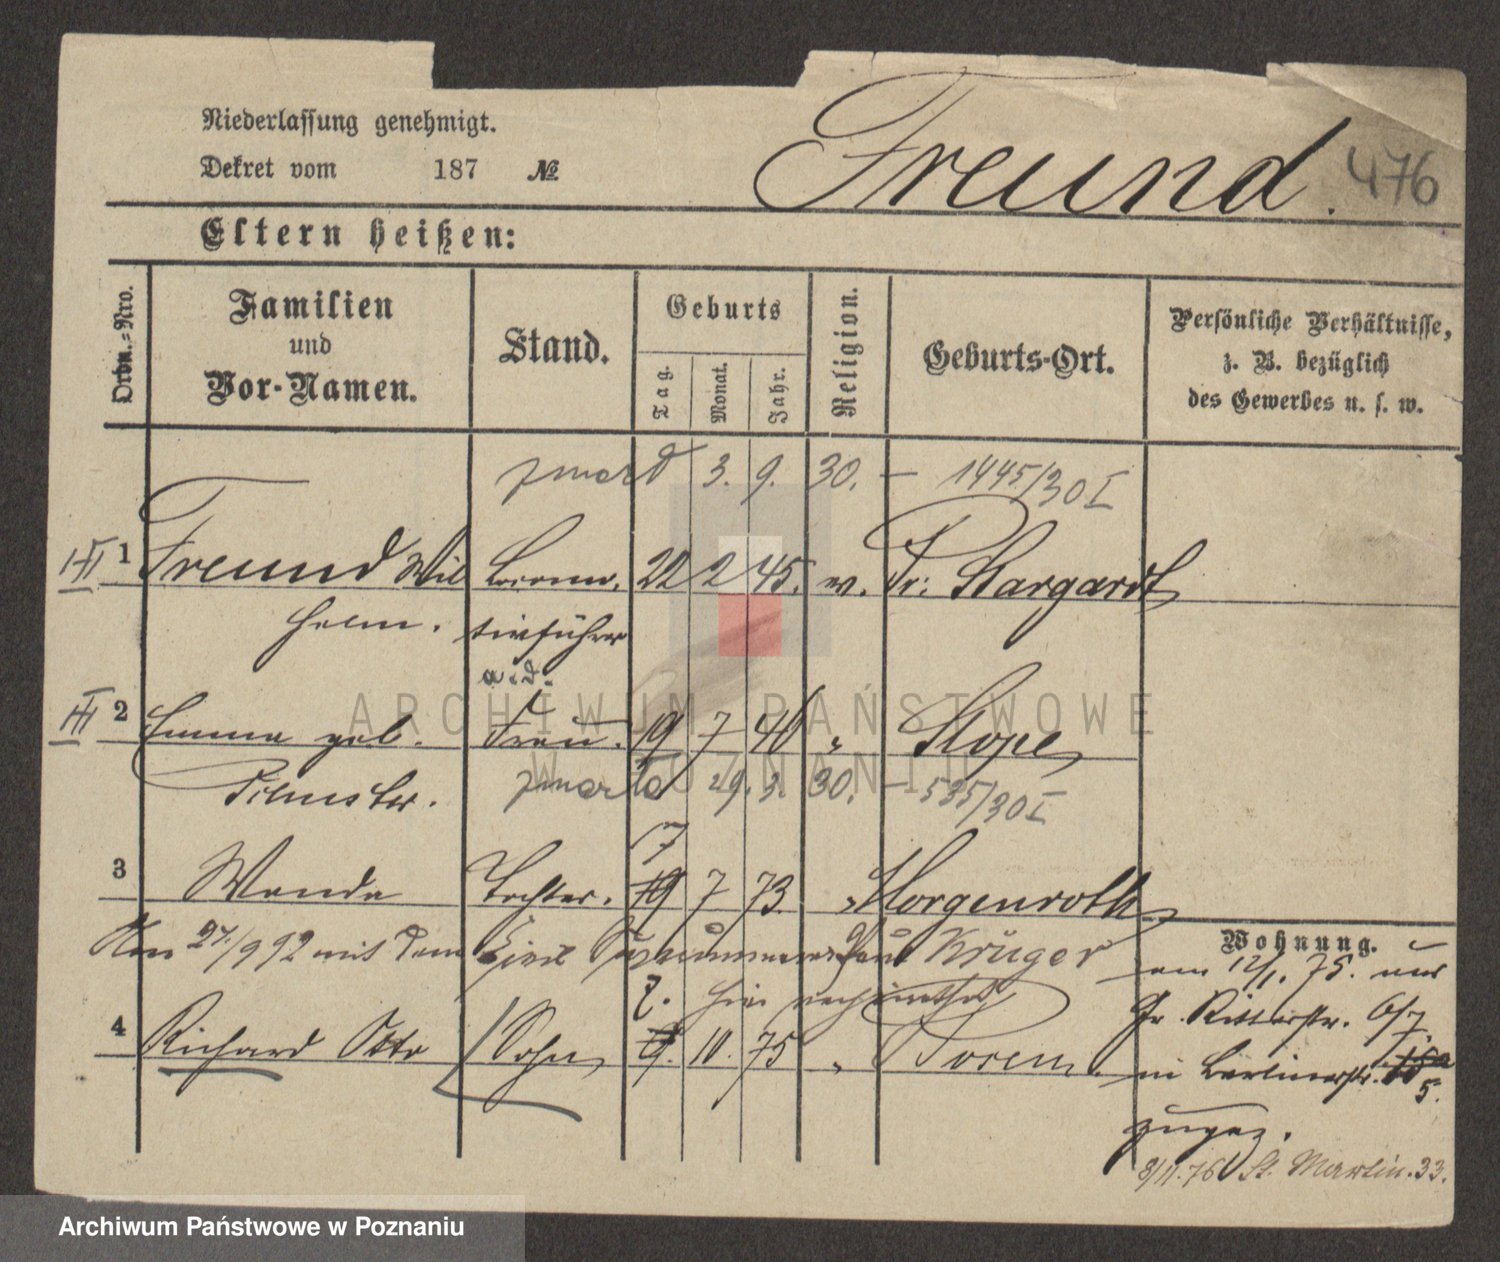 Niederlassung genehmigt.
Dekret vom 187 №
Freund. 476
Eltern heißen:
Ordn.-Nro.
Familien
und
Vor-Namen.
Stand.
Geburts
Tag.
Monat.
Jahr.
Religion.
Geburts-Ort.
Persönliche Verhältnisse,
z. B. bezüglich
des Gewerbes u. s. w.
zmarł 3. 9. 30. — 1445/30 I
1 Freund Wil Locomo. 22 2 45. ev. Pr: Stargardt
helm. tivführer
a. D.
2 Emma geb. Frau. 19 7 46 " Stope
zmarła 29. 3. 30. — 535/30 I
7
3 Wanda Tochter. 19 7 73. " Morgenroth
27./9 92 mit dem Civil Krüger
hier verheirathet
7.
4 Richard Otto Sohn 9. 10. 75 " Posen.
Wohnung.
am 12/1. 75. aus
Gr. Ritterstr. 6/7.
in Berlinerstr. 5.
zugez.
8/11. 76 St. Martin. 33.
ARCHIWUM PAŃSTWOWE
W POZNANIU
Archiwum Państwowe w Poznaniu